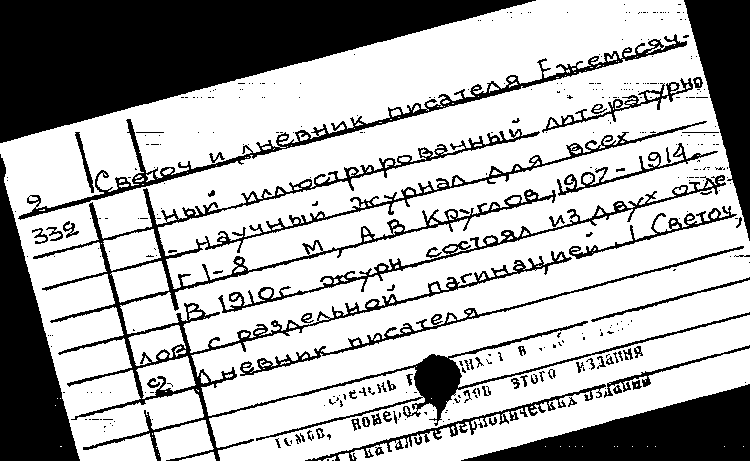 2 Светоч и дневник писателя Ежемесяч-
339 ный иллюстрированный литературно
- научный журнал для всех
г. 1-8 М., А.В Круглов, 1907-1914.
В 1910г. журн. состоял из двух отде-
лов с раздельной пагинацией. 1 Светоч,
2 Дневник писателя
томов, номеров, этого издания
в каталоге периодических изданий